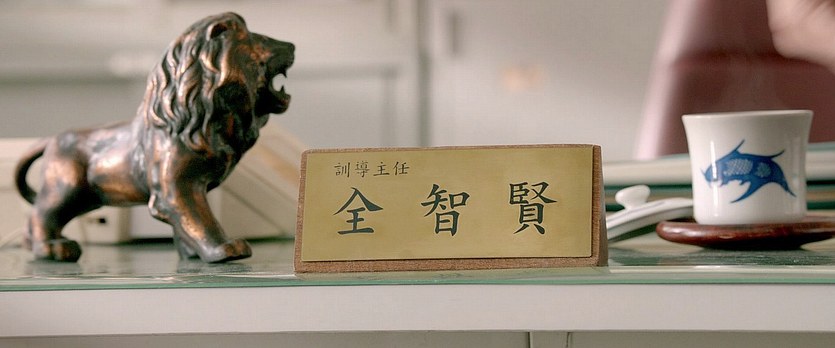 訓導主任
全智賢